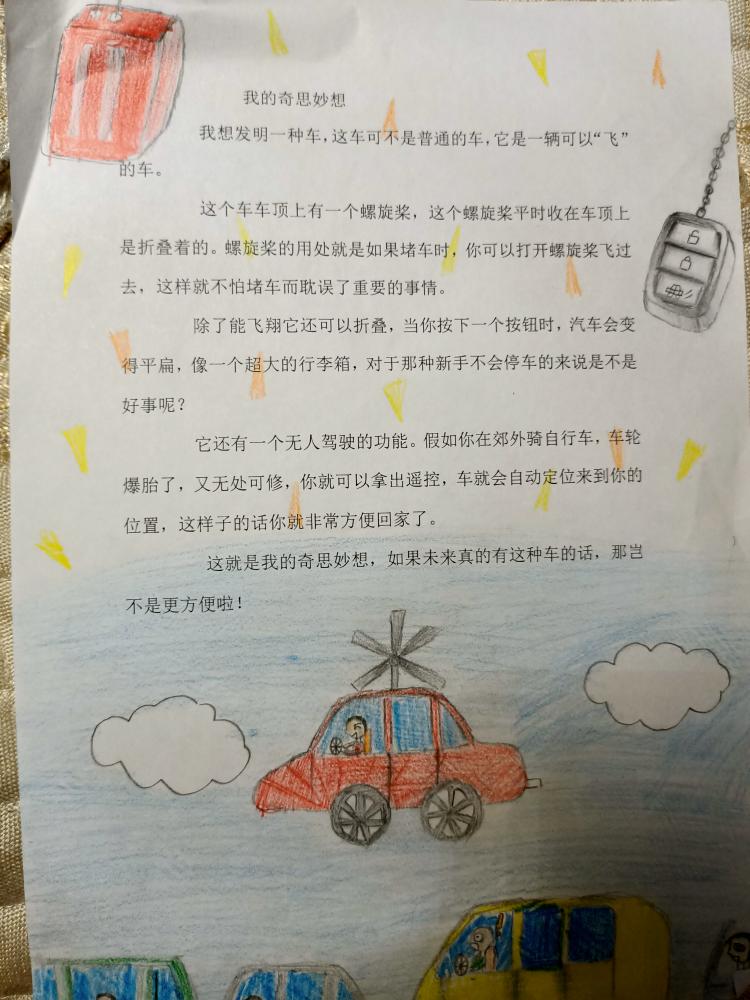 我的奇思妙想
我想发明一种车，这车可不是普通的车，它是一辆可以“飞”
的车。
这个车车顶上有一个螺旋桨，这个螺旋桨平时收在车顶上
是折叠着的。螺旋桨的用处就是如果堵车时，你可以打开螺旋桨飞过
去，这样就不怕堵车而耽误了重要的事情。
除了能飞翔它还可以折叠，当你按下一个按钮时，汽车会变
得平扁，像一个超大的行李箱，对于那种新手不会停车的来说是不是
好事呢？
它还有一个无人驾驶的功能。假如你在郊外骑自行车，车轮
爆胎了，又无处可修，你就可以拿出遥控，车就会自动定位来到你的
位置，这样子的话你就非常方便回家了。
这就是我的奇思妙想，如果未来真的有这种车的话，那岂
不是更方便啦！